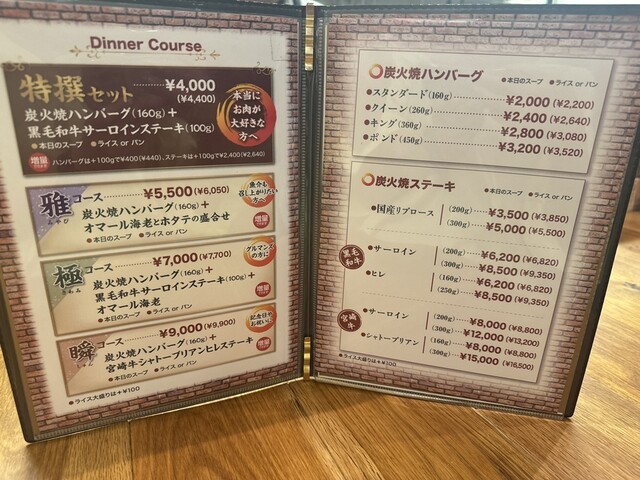 Dinner Course
特撰セット ¥4,000
(¥4,400)
炭火焼ハンバーグ(160g)+
黒毛和牛サーロインステーキ(100g)
●本日のスープ ●ライス or パン
本当に
お肉が
大好きな
方へ
増量 ハンバーグは+100gで¥400(¥440)、ステーキは+100gで¥2,400(¥2,640)
雅コース ¥5,500(¥6,050)
みやび
炭火焼ハンバーグ(160g)+
オマール海老とホタテの盛合せ
●本日のスープ ●ライス or パン
魚介も
召し上がりたい
方へ
増量
極コース ¥7,000(¥7,700)
きわみ
炭火焼ハンバーグ(160g)+
黒毛和牛サーロインステーキ(100g)+
オマール海老
●本日のスープ ●ライス or パン
グルマンズ
の方に
増量
瞬コース ¥9,000(¥9,900)
炭火焼ハンバーグ(160g)+
宮崎牛シャトーブリアンヒレステーキ(100g)
●本日のスープ ●ライス or パン
記念日や
お祝いに
増量
●ライス大盛りは+¥100
炭火焼ハンバーグ ●本日のスープ ●ライス or パン
●スタンダード(160g) ¥2,000(¥2,200)
●クイーン(260g) ¥2,400(¥2,640)
●キング(360g) ¥2,800(¥3,080)
●ポンド(450g) ¥3,200(¥3,520)
炭火焼ステーキ ●本日のスープ ●ライス or パン
●国産リブロース (200g) ¥3,500(¥3,850)
(300g) ¥5,000(¥5,500)
黒毛和牛
●サーロイン (200g) ¥6,200(¥6,820)
(300g) ¥8,500(¥9,350)
●ヒレ (160g) ¥6,200(¥6,820)
(250g) ¥8,500(¥9,350)
宮崎牛
●サーロイン (200g) ¥8,000(¥8,800)
(300g) ¥12,000(¥13,200)
●シャトーブリアン (160g) ¥8,000(¥8,800)
(300g) ¥15,000(¥16,500)
●ライス大盛りは+¥100